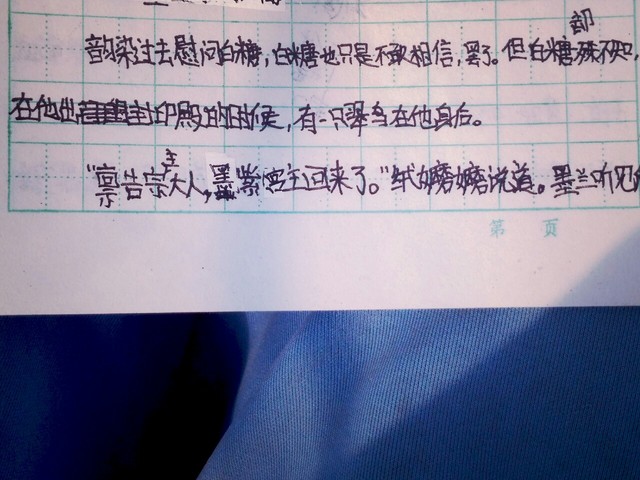 韵染过去慰问白糖，白糖也只是不敢相信，罢了。但白糖却殊不知，
在他出印殿的时候，有一只翠鸟在他身后。
“禀告宗主大人，墨紫宫主回来了。”绒嬷嬷说道。墨兰听见
第 页